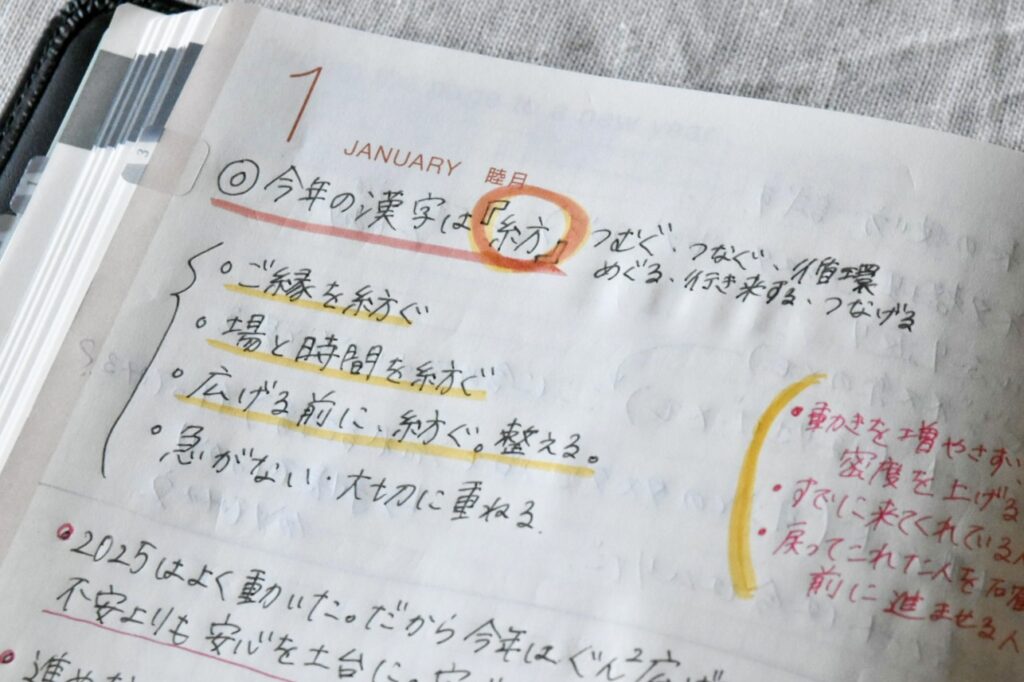 1
JANUARY 睦月
◎今年の漢字は『紡』 つむぐ、つなぐ、循環
めぐる、行き来する、つなげる
○ ご縁を紡ぐ
○ 場と時間を紡ぐ
○ 広げる前に、紡ぐ。整える。
○ 急がない・大切に重ねる
• 動きを増やさず、
密度を上げる
• すでに来てくれている人
• 戻ってこれた人を
前に進ませる人
• 2025はよく動いた。だから今年はぐんぐん広げ
不安よりも安心を土台に。
• 進めな
3